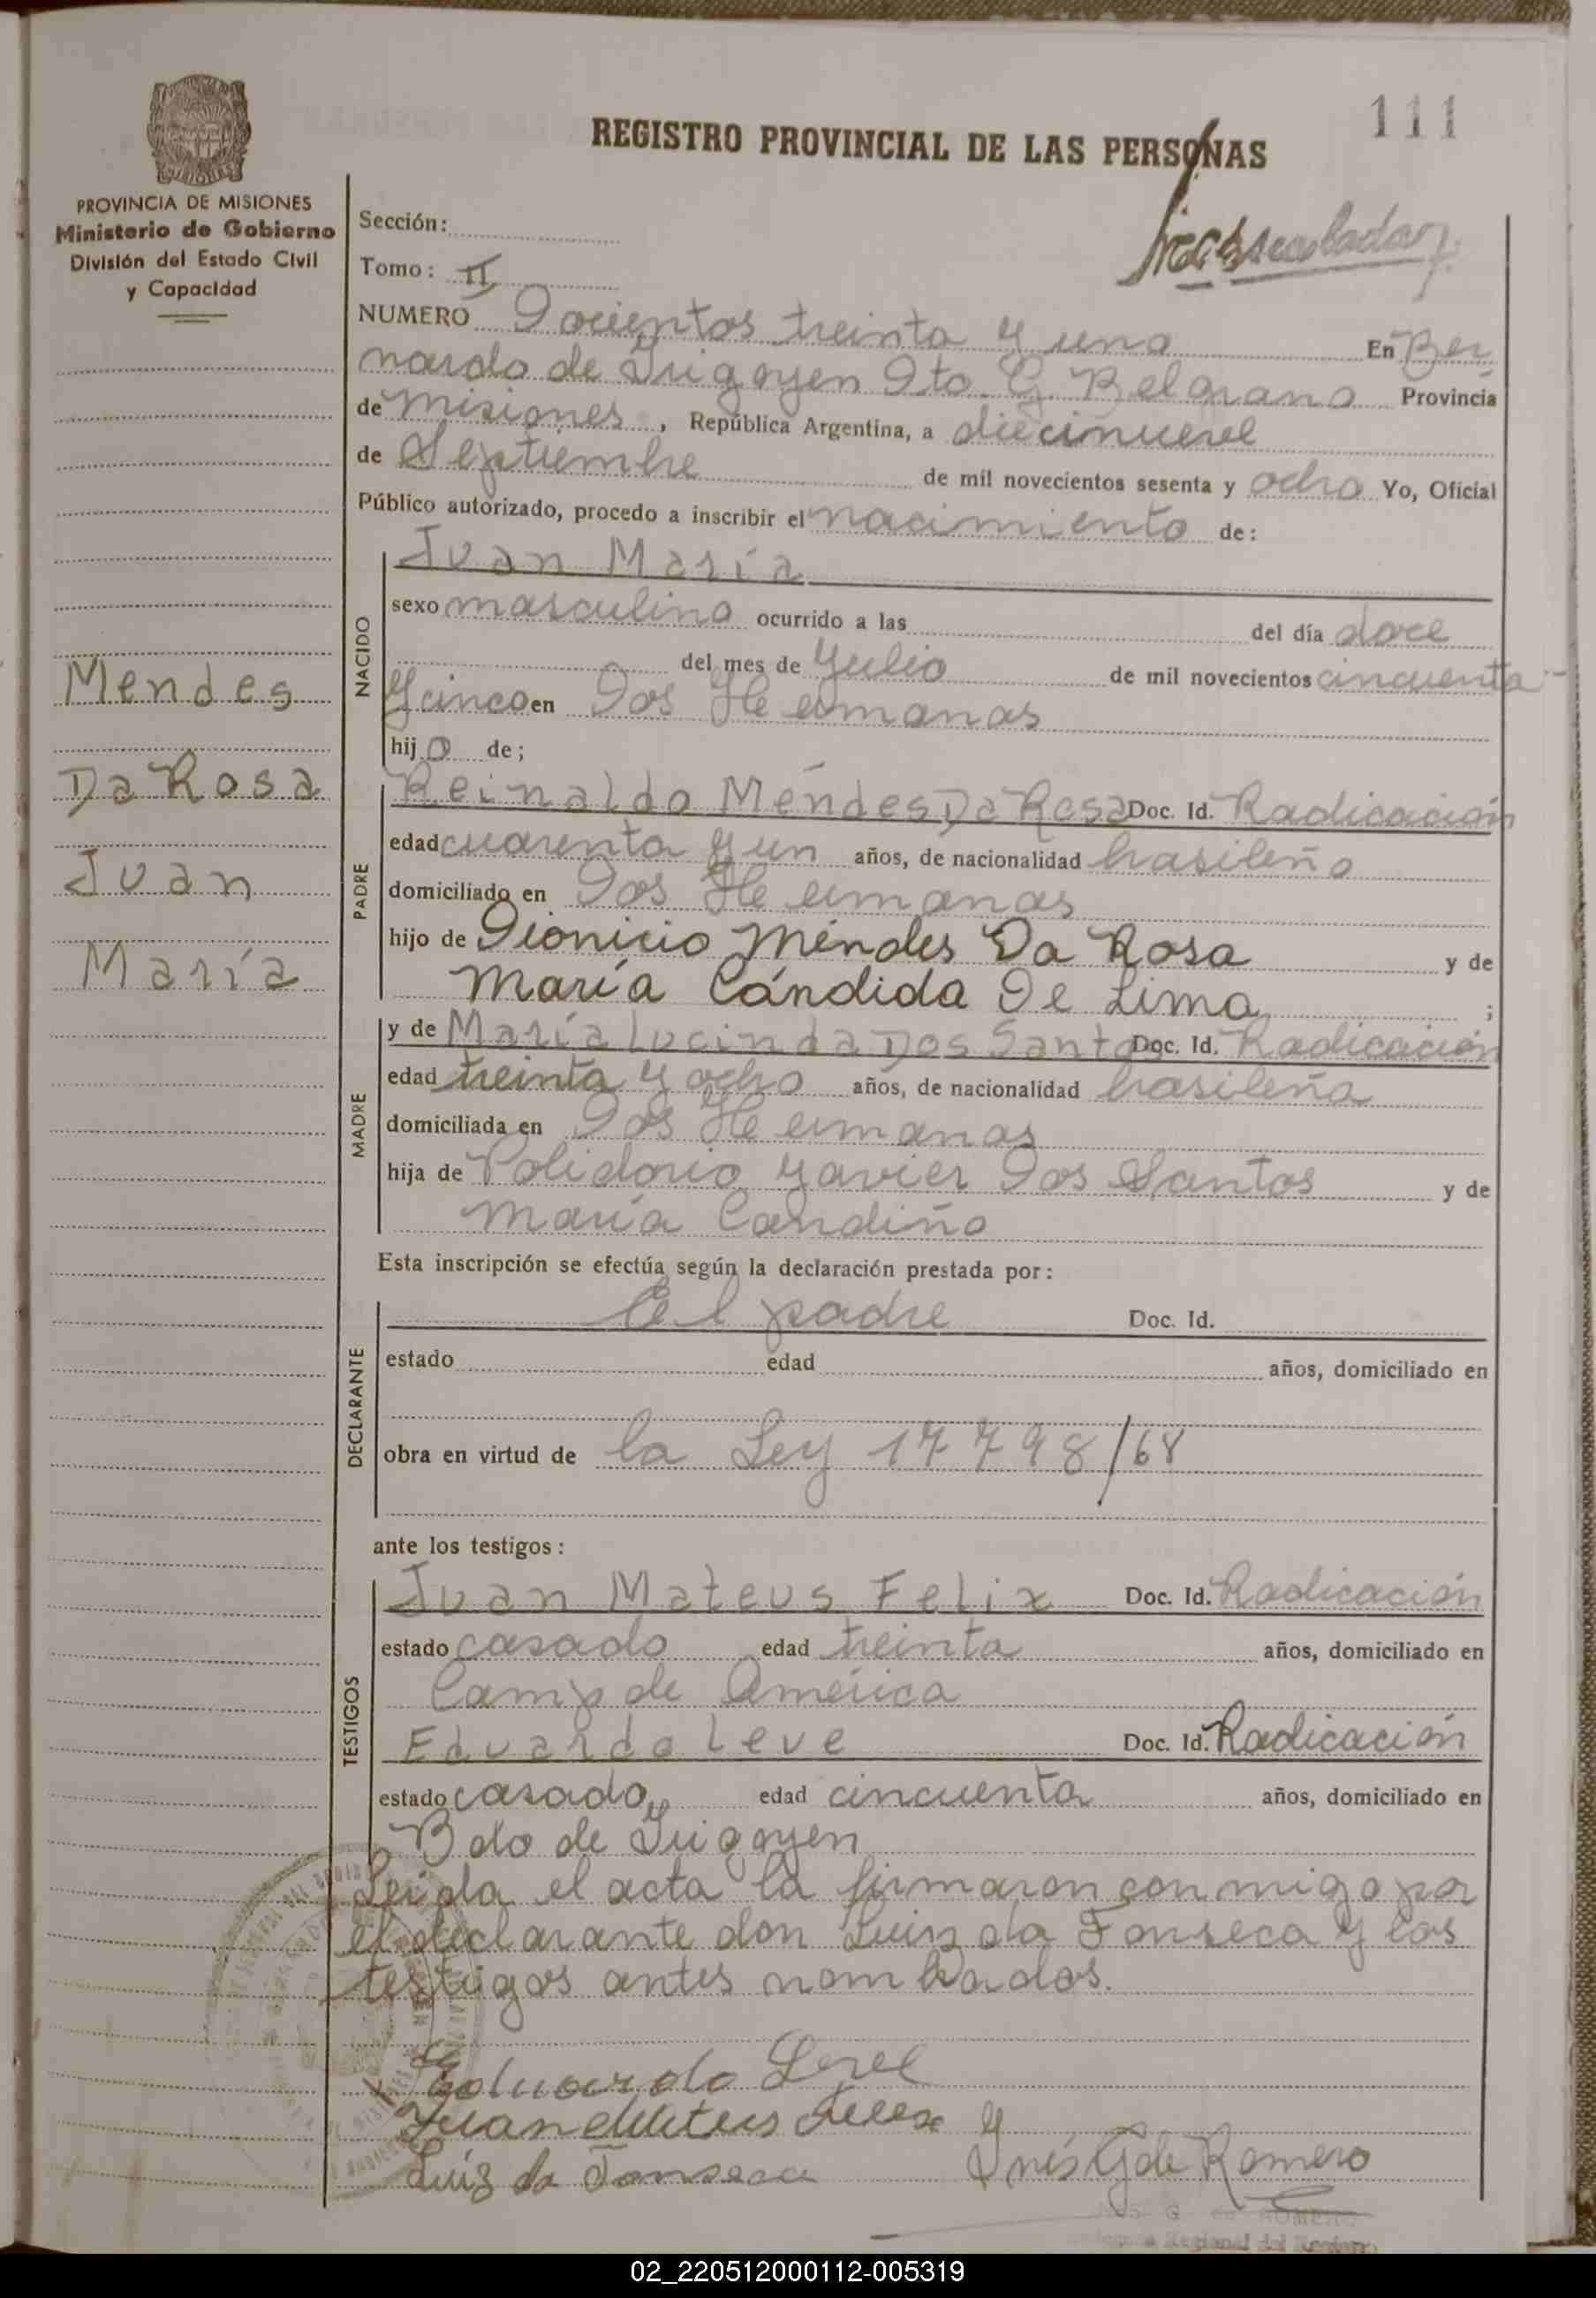 111
REGISTRO PROVINCIAL DE LAS PERSONAS
PROVINCIA DE MISIONES
Ministerio de Gobierno
División del Estado Civil
y Capacidad
Sección:
Tomo: II
NUMERO Docientos treinta y uno En Ber
nardo de Irigoyen Dto. G. Belgrano Provincia
de Misiones, República Argentina, a diecinueve
de Septiembre de mil novecientos sesenta y ocho Yo, Oficial
Público autorizado, procedo a inscribir el nacimiento de:
Juan María
NACIDO
sexo masculino ocurrido a las del día doce
del mes de Julio de mil novecientos cincuenta
y cinco en Dos Hermanas
hijo de;
Mendes
Da Rosa
Juan
María
PADRE
Reinaldo Méndes Da Rosa Doc. Id. Radicación
edad cuarenta y un años, de nacionalidad brasileño
domiciliado en Dos Hermanas
hijo de Dionicio Méndes Da Rosa y de
María Cándida De Lima ;
MADRE
y de María Lucinda Dos Santos Doc. Id. Radicación
edad treinta y ocho años, de nacionalidad brasileña
domiciliada en Dos Hermanas
hija de Polidorio Yavier Dos Santos y de
María Candiño
Esta inscripción se efectúa según la declaración prestada por:
DECLARANTE
El padre Doc. Id.
estado edad años, domiciliado en
obra en virtud de la Ley 17798/68
ante los testigos:
TESTIGOS
Juan Mateus Felix Doc. Id. Radicación
estado casado edad treinta años, domiciliado en
Camp de América
Eduardo Leve Doc. Id. Radicación
estado casado edad cincuenta años, domiciliado en
Bdo de Irigoyen
Leida el acta la firmaron conmigo por
el declarante don Luis da Fonseca y los
testigos antes nombrados.
Eduardo
Juan Mateus Felix
Luis da Fonseca Inés G de Romero
02_220512000112-005319